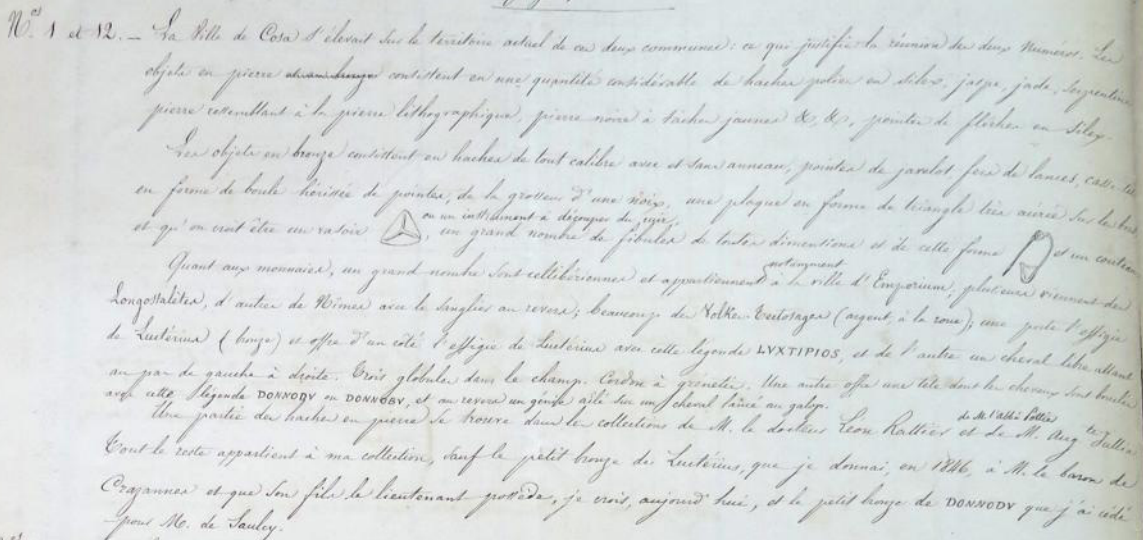 Nos 1 et 12. — La Ville de Cosa s'élevait sur le territoire actuel de ces deux communes : ce qui justifie la réunion des deux Numéros. Les
objets en pierre consistent en une quantité considérable de haches polies en silex, jaspe, jade, Serpentine
pierre ressemblant à la pierre lithographique, pierre noire à taches jaunes &, &, pointes de flèches en Silex.
Les objets en bronze consistent en haches de tout calibre avec et sans anneau, pointes de javelot, fers de lances, casse-tête
en forme de boule hérissée de pointes, de la grosseur d'une noix, une plaque en forme de triangle très aciérée sur les bords
et qu'on croit être un rasoir ou un instrument à découper du cuir, un grand nombre de fibules de toutes dimentions et de cette forme et un couteau
Quant aux monnaies, un grand nombre sont celtibériennes et appartiennent notamment à la ville d'Emporium, plusieurs viennent des
Longostalètes, d'autres de Nîmes avec le sanglier au revers ; beaucoup des Volkes-Tectosages (argent, à la roue) ; une porte l'effigie
de Luctérius (bronze) et offre d'un côté l'effigie de Luctérius avec cette légende LVXTIPIOS, et de l'autre un cheval libre allant
au pas de gauche à droite. Trois globules dans le champ. Cordon à grenetis. Une autre offre une tête dont les cheveux sont bouclés
avec cette légende DONNODV ou DONNOBV, et au revers un génie ailé sur un cheval lancé au galop.
Une partie des haches en pierre se trouve dans les collections de M. le docteur Léon Rattier et de M. Augte Jullia de M. l'abbé Pottier
Tout le reste appartient à ma collection, sauf le petit bronze de Luctérius, que je donnai, en 1846, à M. le baron de
Crazannes et que son fils le lieutenant possède, je crois, aujourd'hui, et le petit bronze de DONNODV que j'ai cédé
pour M. de Saulcy.